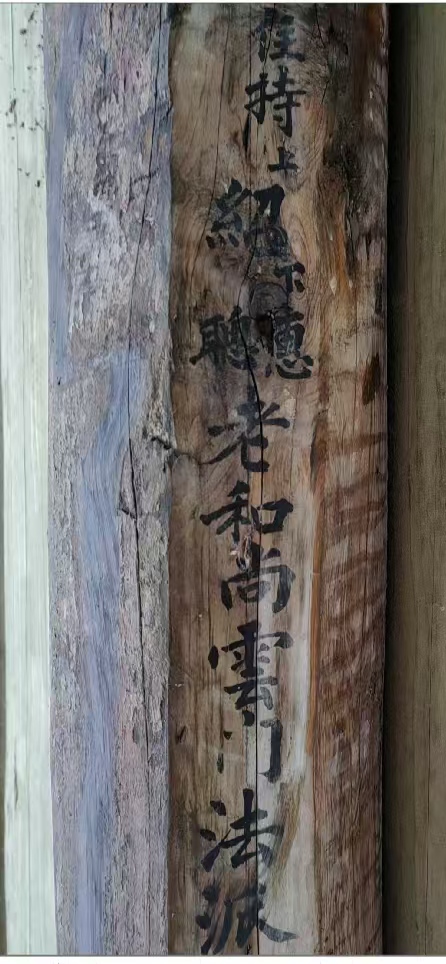 住持上紹下聰憲老和尚雲门法派